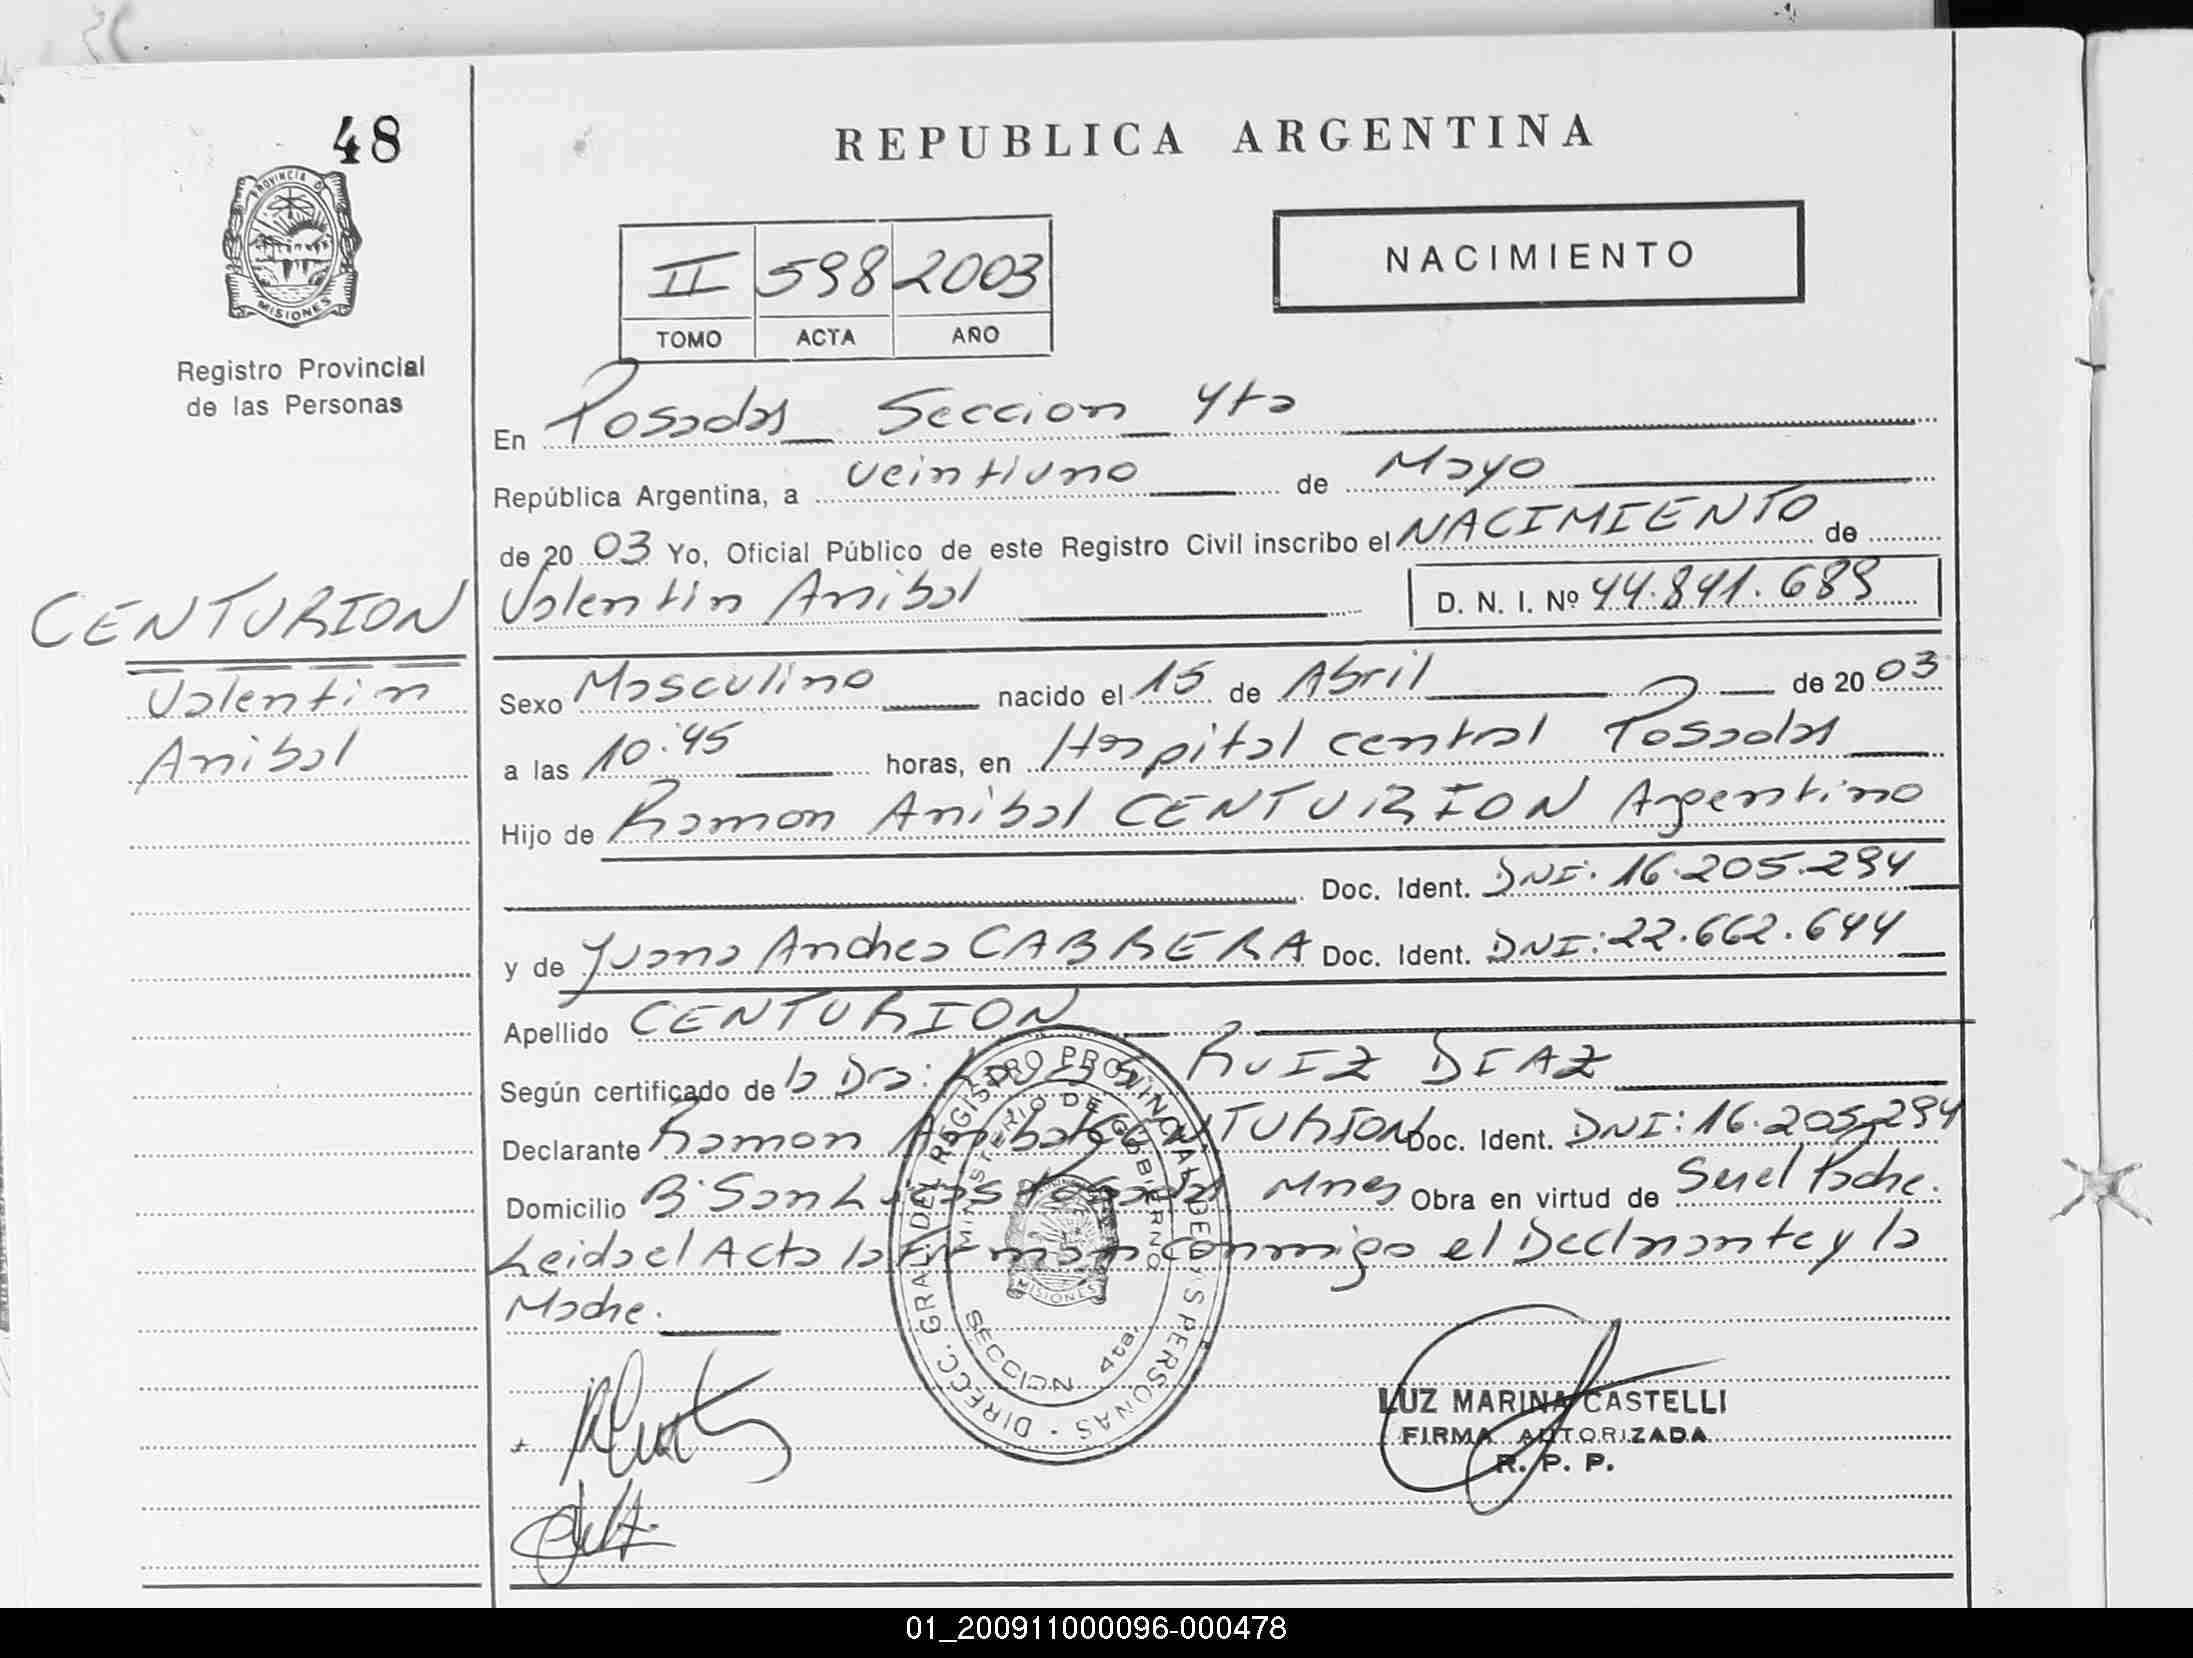 48
REPUBLICA ARGENTINA
PROVINCIA D
MISIONES
Registro Provincial
de las Personas
NACIMIENTO
II 598 2003
TOMO ACTA AÑO
En Posadas Seccion 4ta
República Argentina, a veintiuno de Mayo
de 20 03 Yo, Oficial Público de este Registro Civil inscribo el NACIMIENTO de
Valentin Anibal D. N. I. Nº 44.841.689
CENTURION
Valentin
Anibal
Sexo Masculino nacido el 15 de Abril de 20 03
a las 10:45 horas, en Hospital central Posadas
Hijo de Ramon Anibal CENTURION Argentino
Doc. Ident. DNI: 16.205.294
y de Juana Andrea CABRERA Doc. Ident. DNI: 22.662.644
Apellido CENTURION
Según certificado de la Dra: RUIZ DIAZ
Declarante Ramon Anibal CENTURION Doc. Ident. DNI: 16.205.294
Domicilio B: San Lucas Posadas Mnes Obra en virtud de Ser el Padre.
Leida el Acta la Firman conmigo el Declarante y la
Madre.
DIRECC. GRAL. DEL REGISTRO PROVINCIAL DE LAS PERSONAS
MINISTERIO DE GOBIERNO
MISIONES
SECCION 4ta.
LUZ MARINA CASTELLI
FIRMA AUTORIZADA
R. P. P.
01_200911000096-000478